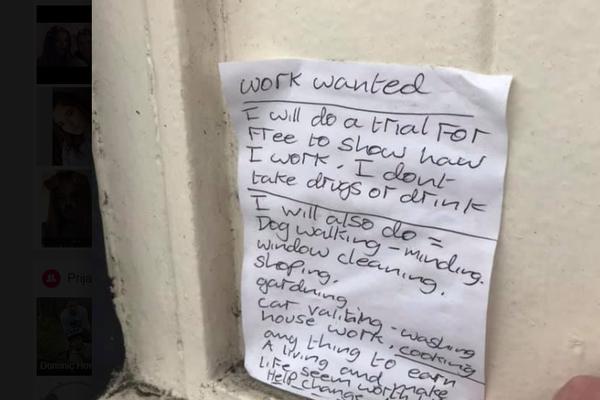 work wanted
I will do a trial For
Free to show how
I work. I dont
take drugs or drink
I will also do =
Dog walking - minding.
window cleaning.
shoping.
gardning
car valiting - washing
house work, cooking
any thing to earn
A living and make
Life seem worth
Help change
Prija
Dominic How